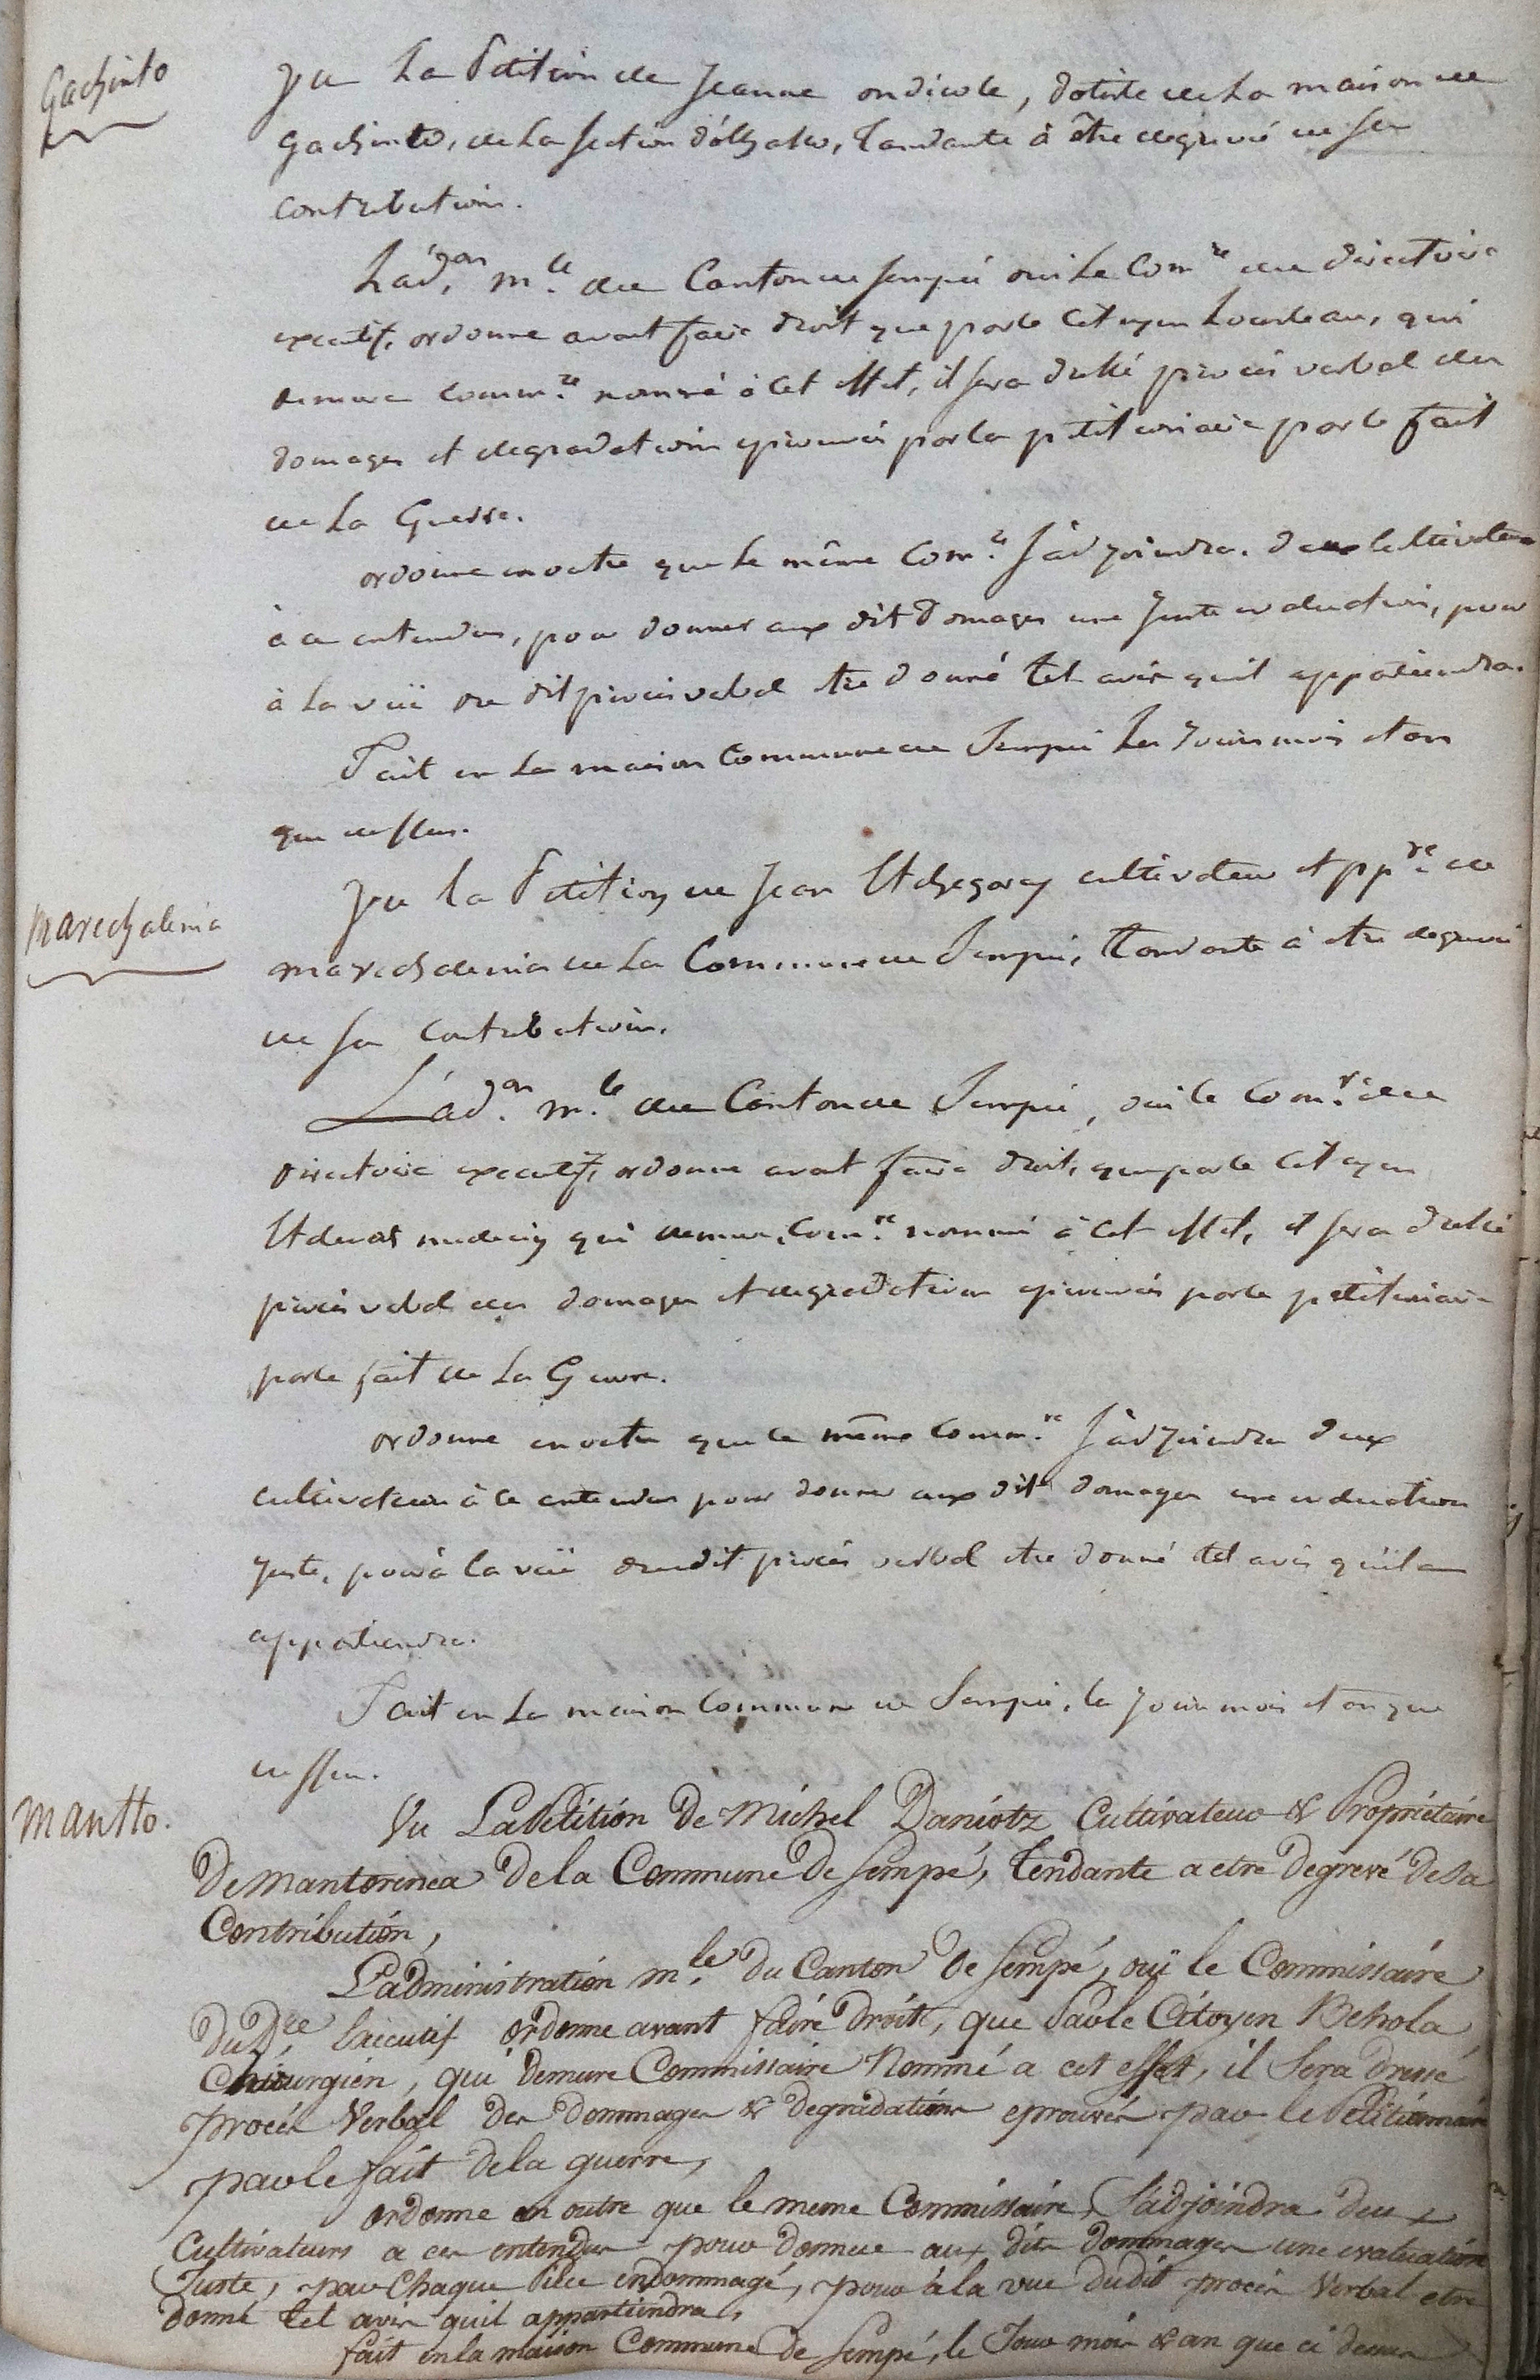 Gachinto
Vu La Petition de Jeanne ondicole, dotiste de La maison de
Gachinto, de La Section d'olhabe, Tandante à être degrevé de sa
contribution.
L'ad.on m.le du Canton de Sempé oui Le Com.re du directoire
executif, ordonne avant faire droit que par le Citoyen Lourteau, qui
demeure comm.re nommé à cet effet, il sera dressé procès verbal des
domages et degradations eprouvés par la petitionnaire par le fait
de La Guerre.
ordonne en outre que Le même Com.re S'adjoindra deux Cultivateurs
à ce entendus, pour donner aux dit Domages une Juste evaluation, pour
à La vüe du dit procès verbal être donné tel avis qu'il appartiendra.
Fait en La maison Commune de Sempé Les Jour mois et an
que dessus.
Marechalenia
Vu La Petition de Jean Etchegaray cultivateur et pp.re de
Marechalenia de La Commune de Sempé, Tendante à être degrevé
de Sa Contribution.
L'ad.on m.le du Canton de Sempé, oui le Com.re du
Directoire executif, ordonne avant faire droit, que par le Citoyen
medecin qui demeure Com.re nommé à cet effet, il sera dressé
procès verbal des domages et degradations eprouvés par le petitionnaire
par le fait de La Guerre.
ordonne en outre que le même Comm.re S'adjoindra deux
cultivateurs à ce entendus pour donner aux dit domages une evaluation
Juste, pour à la vüe du dit procès verbal être donné tel avis qu'il en
appartiendra.
Fait en La maison Commune de Sempé, le Jour mois et an que
dessus.
Mantto.
Vu La Petition De Michel Daniotz Cultivateur & Propriétaire
De Mantorenea De la Commune De Sempé, Tendante a etre Degrevé De Sa
Contribution,
L'administration m.le Du Canton De Sempé, ouï le Commissaire
Du D.re Executif ordonne avant faire Droit, que Par le Citoyen Behola
Chirurgien, qui Demeure Commissaire Nommé a cet effet, il Sera Dressé
procès Verbal Des Dommages & Degradations eprouvés par le Petitionnaire
par le fait De la guerre,
ordonne en outre que le meme Commissaire, S'adjoindra Deux
Cultivateurs a ces entendus pour Donner aux Dits Dommages une evaluation
Juste, par Chaque Piece endommagé, pour à la vue du dit procès Verbal etre
Donné Tel avis quil appartiendra,
fait en la maison Commune De Sempé, le Jour mois & an que ci dessus